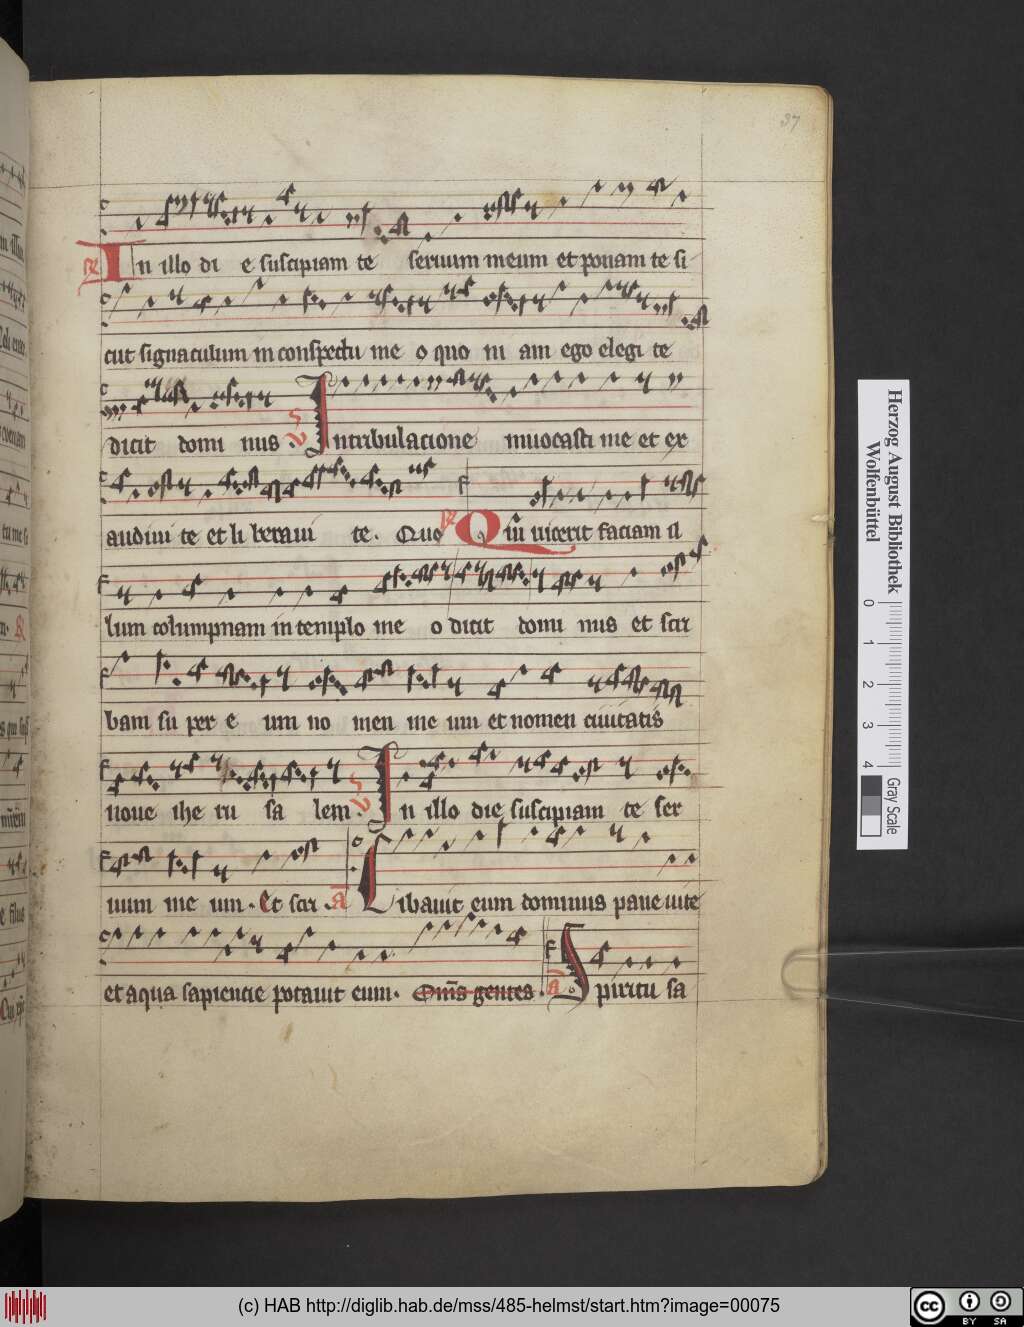 37
℟ In illo di e suscipiam te seruum meum et ponam te si
cut signaculum in conspectu me o quo ni am ego elegi te
dicit domi nus . ℣ In tribulacione inuocasti me et ex
audiui te et li beraui te . Quo ℟ Qui uicerit faciam il
lum columpnam in templo me o dicit domi nus et scri
bam su per e um no men me um et nomen ciuitatis
noue ihe ru sa lem . ℣ In illo die suscipiam te ser
uum me um . Et scri . A Cibauit eum dominus pane uite
et aqua sapiencie potauit eum . Om̄s gentes . A Spiritu sa
Herzog August Bibliothek
Wolfenbüttel
0 1 2 3 4
Gray Scale
(c) HAB http://diglib.hab.de/mss/485-helmst/start.htm?image=00075
cc BY SA